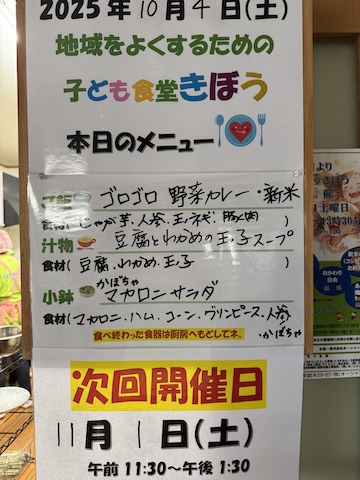 2025年10月4日(土)
地域をよくするための
子ども食堂きぼう
本日のメニュー
ご飯 ゴロゴロ 野菜カレー・新米
食材(じゃが芋、人参、玉ネギ、豚肉)
汁物 豆腐とわかめの玉子スープ
食材(豆腐、わかめ、玉子)
小鉢 かぼちゃ マカロニサラダ
食材(マカロニ、ハム、コーン、グリンピース、人参、
・かぼちゃ
食べ終わった食器は厨房へもどしてネ。
次回開催日
11月1日(土)
午前11:30～午後1:30
おかわり
自由